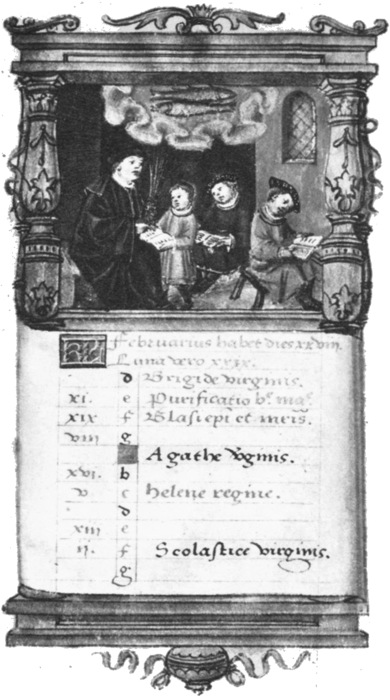 KL Februarius habet dies xxviii.
Luna vero xxix.
d Brigide virginis.
xi. e Purificatio b. ma.
xix f Blasi epi et mris.
viii g
Agathe Vginis.
xvi. b
v c helene regine.
d
xiii e
ii. f Scolastice virginis.
g